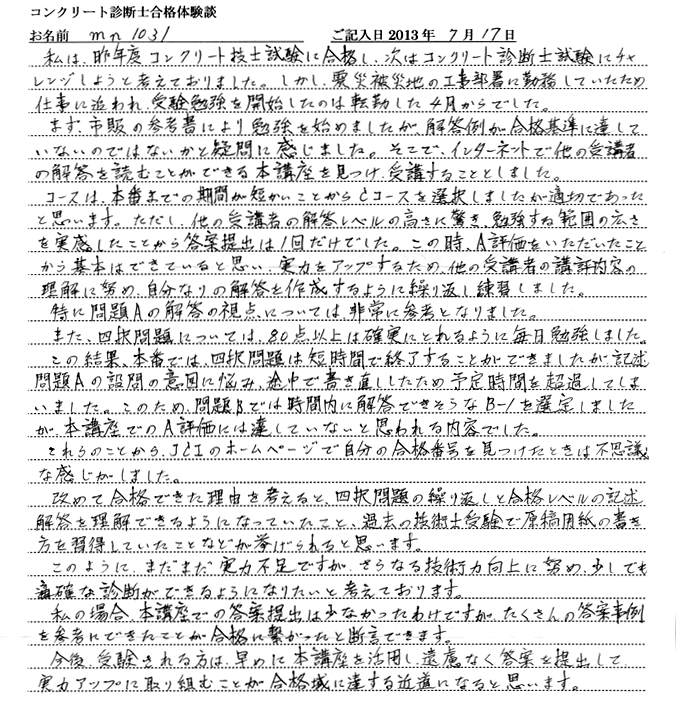 コンクリート診断士合格体験談
お名前 mn1031 ご記入日 2013年 7月17日
私は、昨年度コンクリート技士試験に合格し、次はコンクリート診断士試験にチャ
レンジしようと考えておりました。しかし、震災被災地の工事部署に勤務していたため
仕事に追われ、受験勉強を開始したのは転勤した4月からでした。
まず、市販の参考書により勉強を始めましたが、解答例が合格基準に達して
いないのではないかと疑問に感じました。そこで、インターネットで他の受講者
の解答を読むことができる本講座を見つけ、受講することとしました。
コースは、本番までの期間が短かいことからCコースを選択しましたが適切であった
と思います。ただし、他の受講者の解答レベルの高さに驚き、勉強する範囲の広さ
を実感したことから答案提出は1回だけでした。この時、A評価をいただいたこと
から基本はできていると思い、実力をアップするため、他の受講者の講評内容の
理解に努め、自分なりの解答を作成するように繰り返し練習しました。
特に問題Aの解答の視点については、非常に参考となりました。
また、四択問題については、80点以上は確実にとれるように毎日勉強しました。
この結果、本番では、四択問題は短時間で終了することができましたが、記述
問題Aの設問の意図に悩み、途中で書き直ししたため予定時間を超過してしま
いました。このため、問題Bでは時間内に解答できそうなB-1を選定しました
が、本講座でのA評価には達していないと思われる内容でした。
これらのことから、JCIのホームページで自分の合格番号を見つけたときは不思議
な感じがしました。
改めて合格できた理由を考えると、四択問題の繰り返しと合格レベルの記述
解答を理解できるようになっていたこと、過去の技術士受験で原稿用紙の書き
方を習得していたことなどが挙げられると思います。
このように、まだまだ実力不足ですが、さらなる技術力向上に努め、少しでも
適確な診断ができるようになりたいと考えております。
私の場合、本講座での答案提出は少なかったわけですが、たくさんの答案事例
を参考にできたことが合格に繋がったと断言できます。
今後、受験される方は、早めに本講座を活用し、遠慮なく答案を提出して
実力アップに取り組むことが合格域に達する近道になると思います。